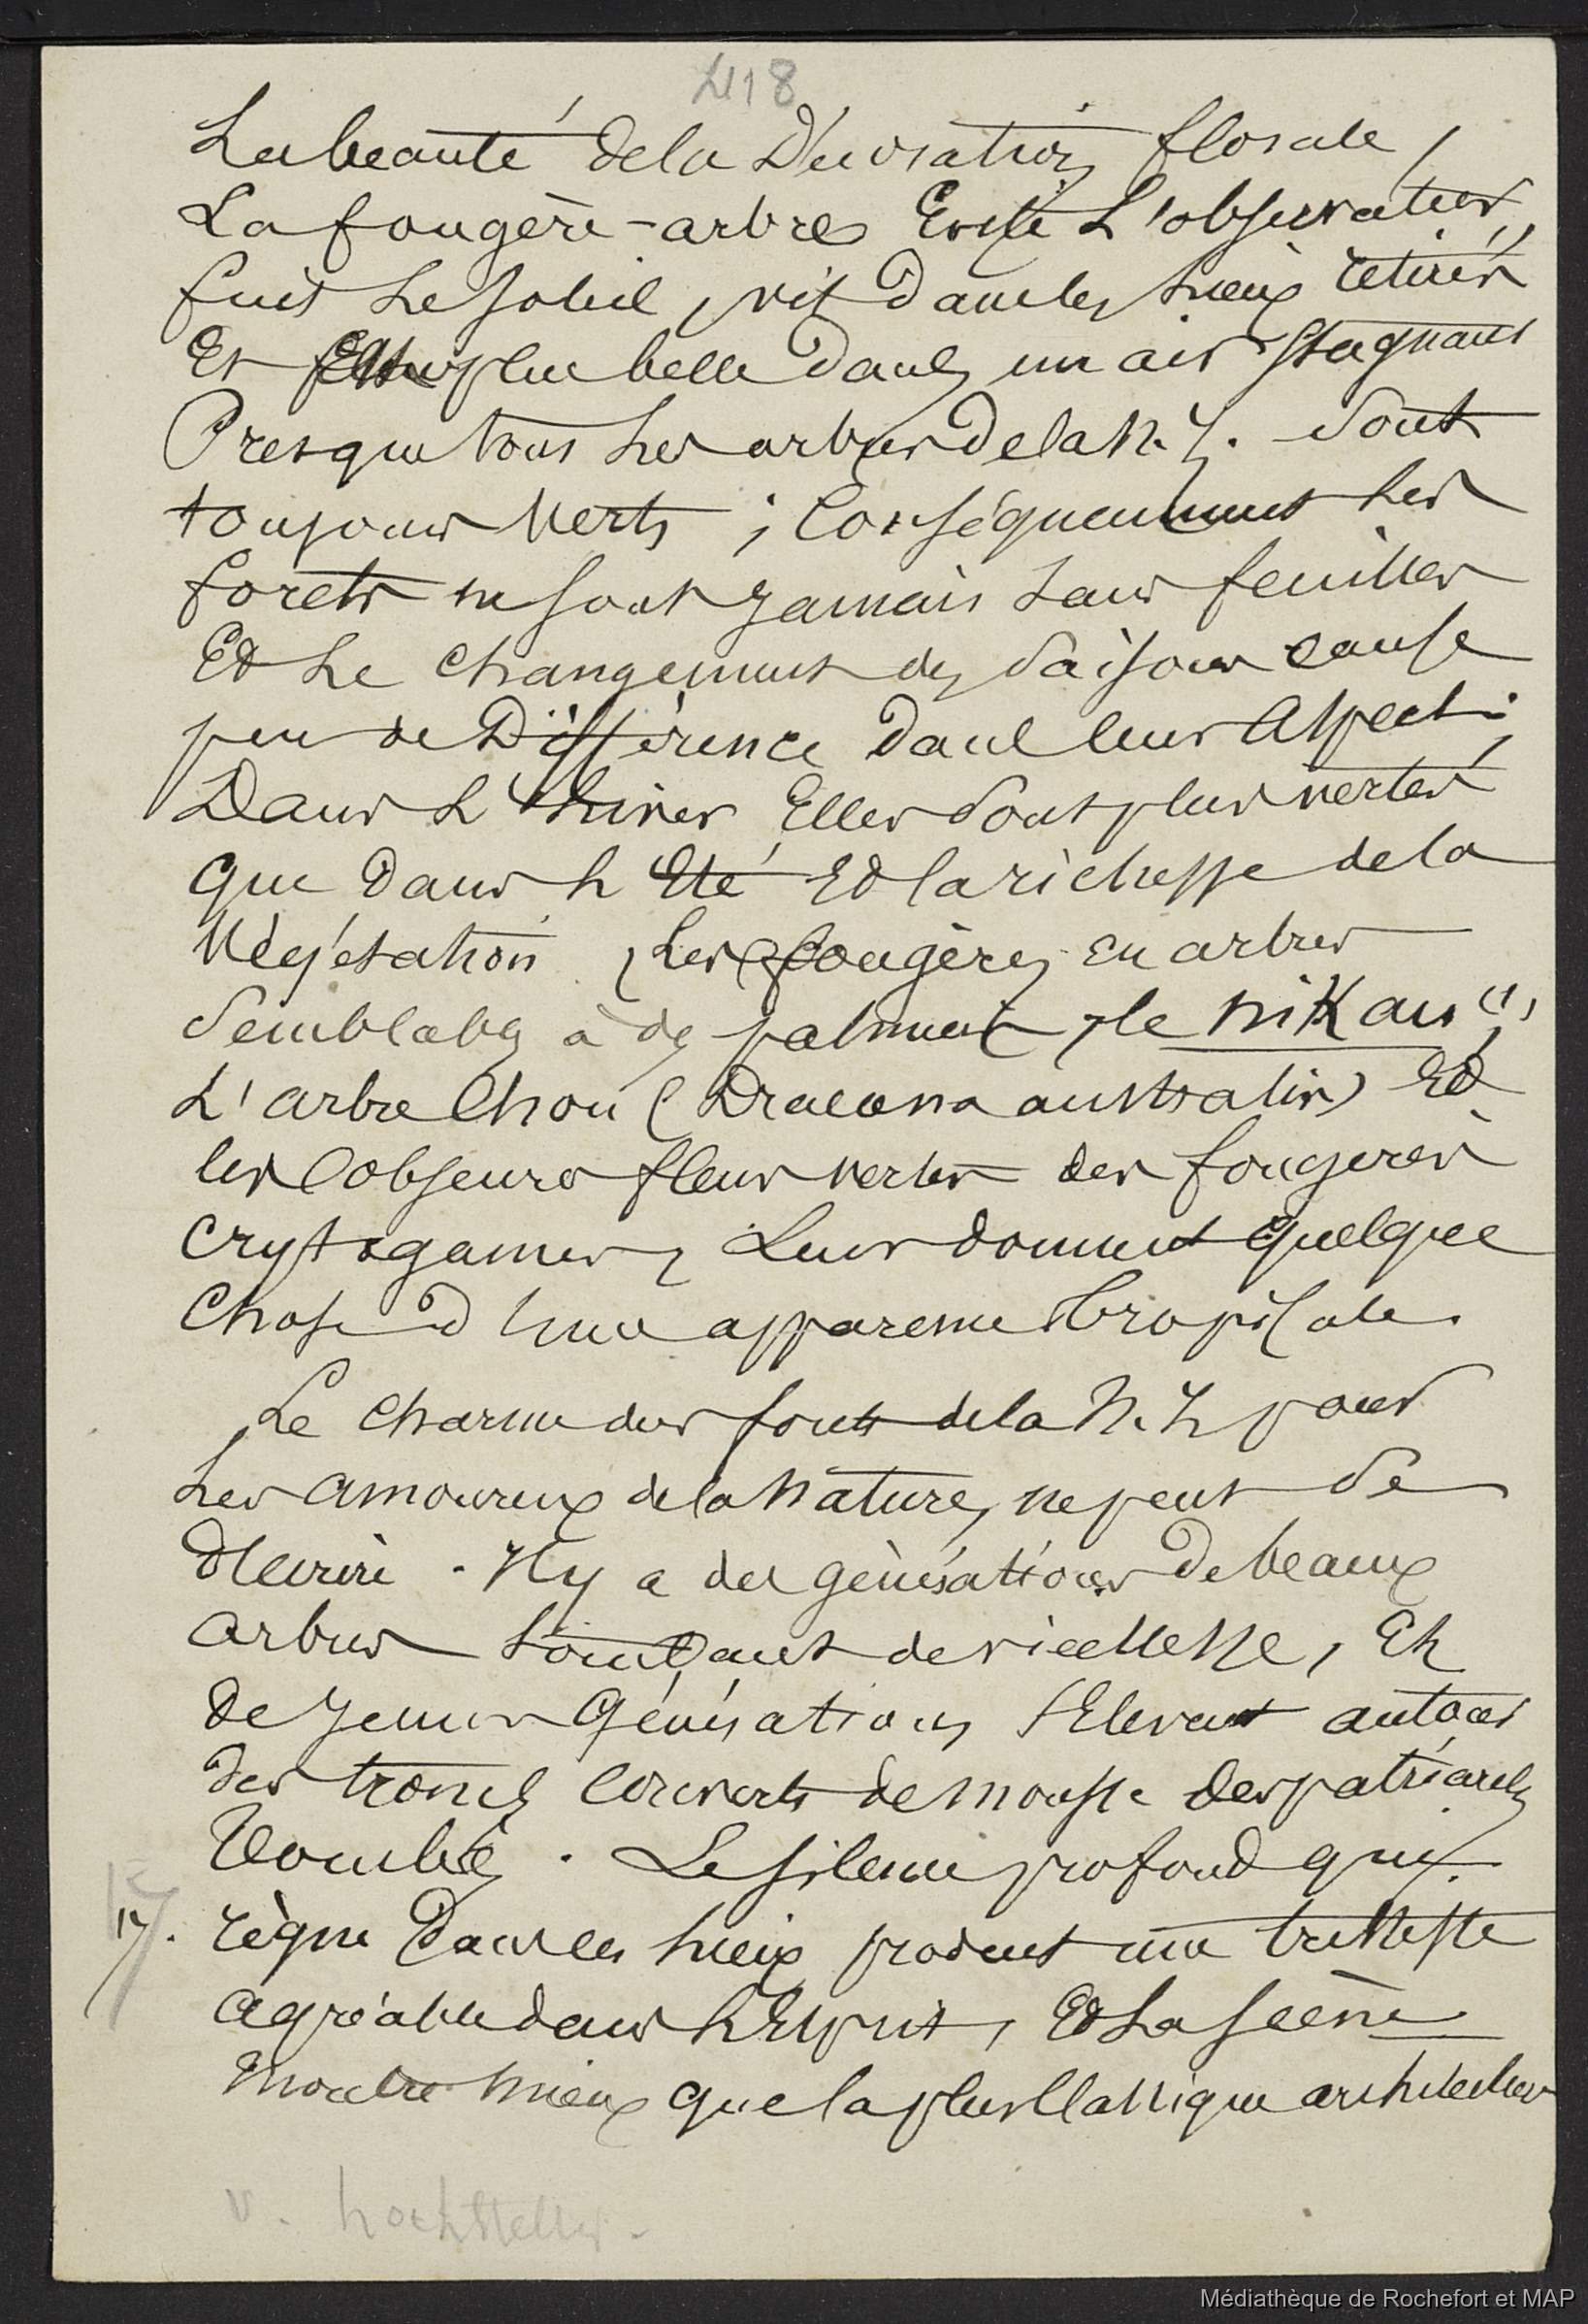 418
La beauté de la Décoration florale,
La fougère-arbres Evite L'observateur,
fuit Le soleil, vit dans les Lieux retirés
Et plus belle dans un air stagnant
Presque tous Les arbres de la N. Z. Sont
toujours Verts ; Conséquemment Les
forets ne sont Jamais Sans feuilles
Et Le changement des Saisons cause
peu de Différence dans leur Aspect ;
Dans L'hiver Elles Sont plus vertes
que dans L'Eté Et la richesse de la
Végétation, Les fougères en arbres
Semblabes à des palmiers, le NiKau",
L'arbre Chou (Dracoena australis) Et
les obscures fleurs vertes des fougeres
Cryptogames, Leur donnent quelque
Chose d'une apparence tropicale.
Le charme des forets de la N. Z pour
Les amoureux de la Nature, ne peut Se
décrire. Il y a des générations de beaux
arbres tombant de vieillesse, Et
de Jeunes Générations S'Elevent autour
des troncs Couverts de mousse des patriarches
Tombés. Le silence profond qui
17. règne Dans ces Lieux produit une tristesse
agréable dans L'Esprit, Et La scène
montre mieux que la plus Classique architecture
v. hochstetter.
Médiathèque de Rochefort et MAP